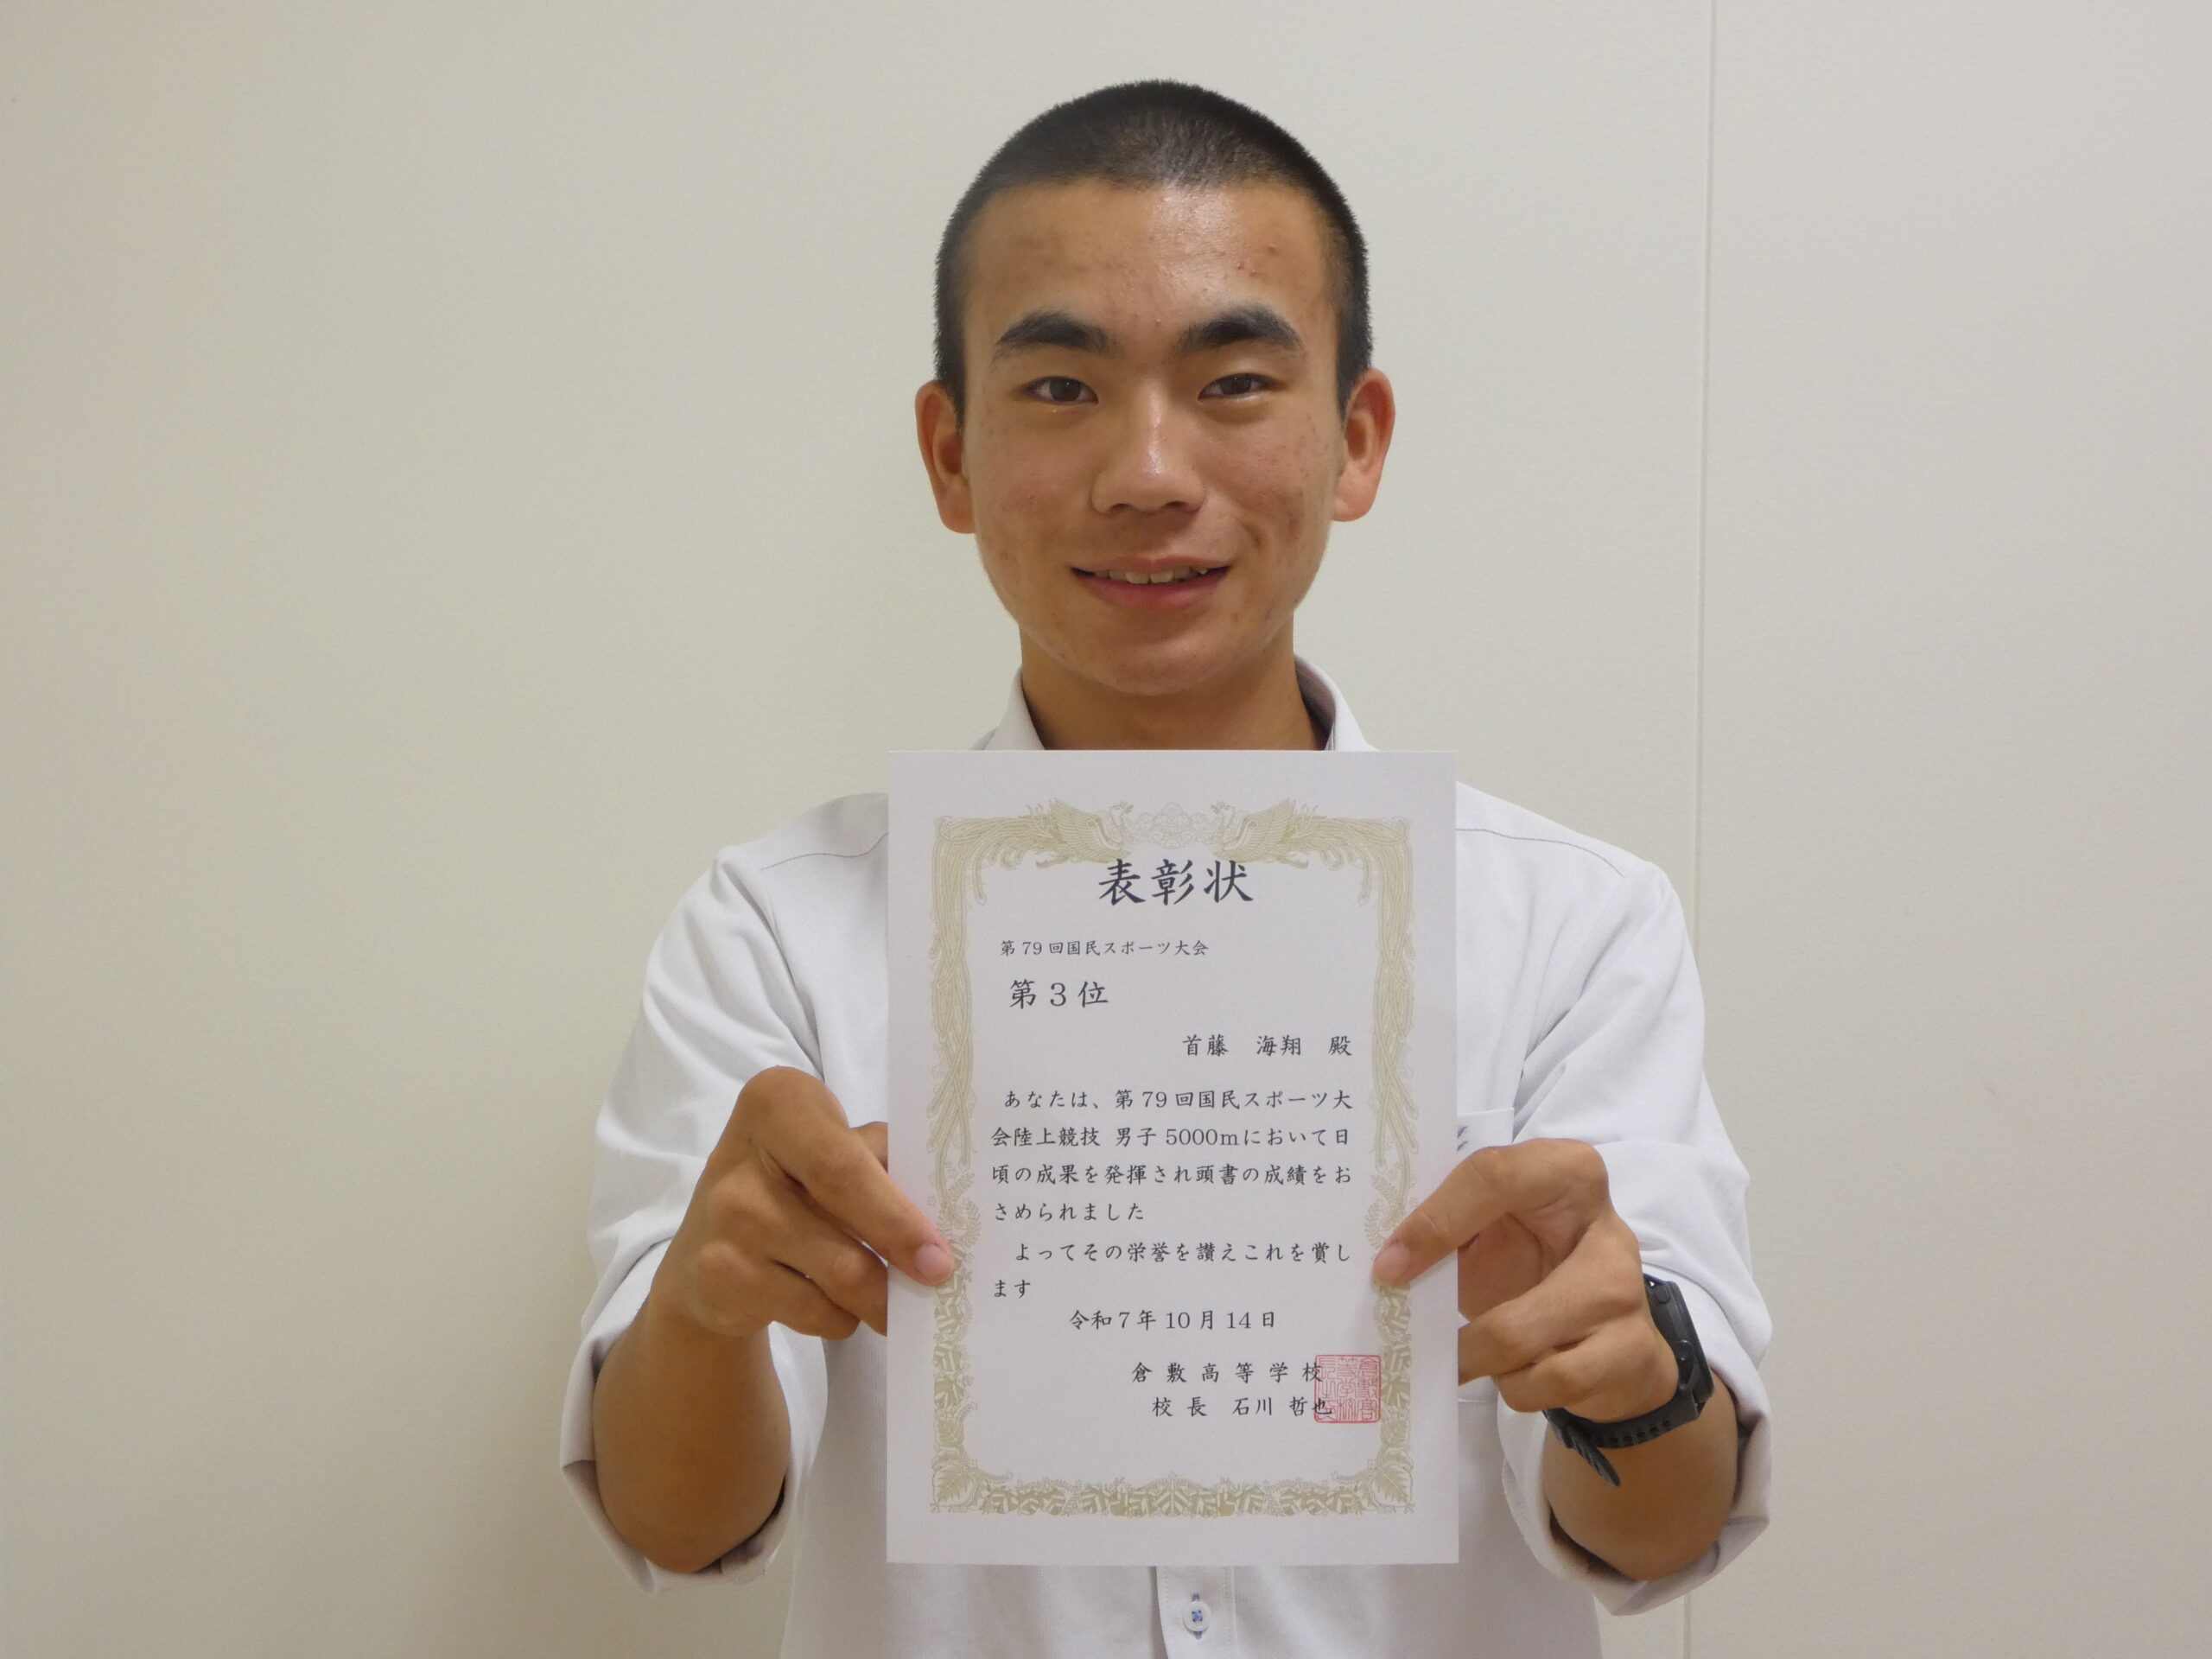 表彰状
第79回国民スポーツ大会
第3位
首藤 海翔 殿
あなたは、第79回国民スポーツ大
会陸上競技 男子5000mにおいて日
頃の成果を発揮され頭書の成績をお
さめられました
よってその栄誉を讃えこれを賞し
ます
令和7年10月14日
倉敷高等学校
校長 石川 哲也